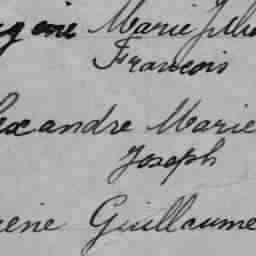 gene Marie Julie
François
lexandre Marie
Joseph
rene Guillaume